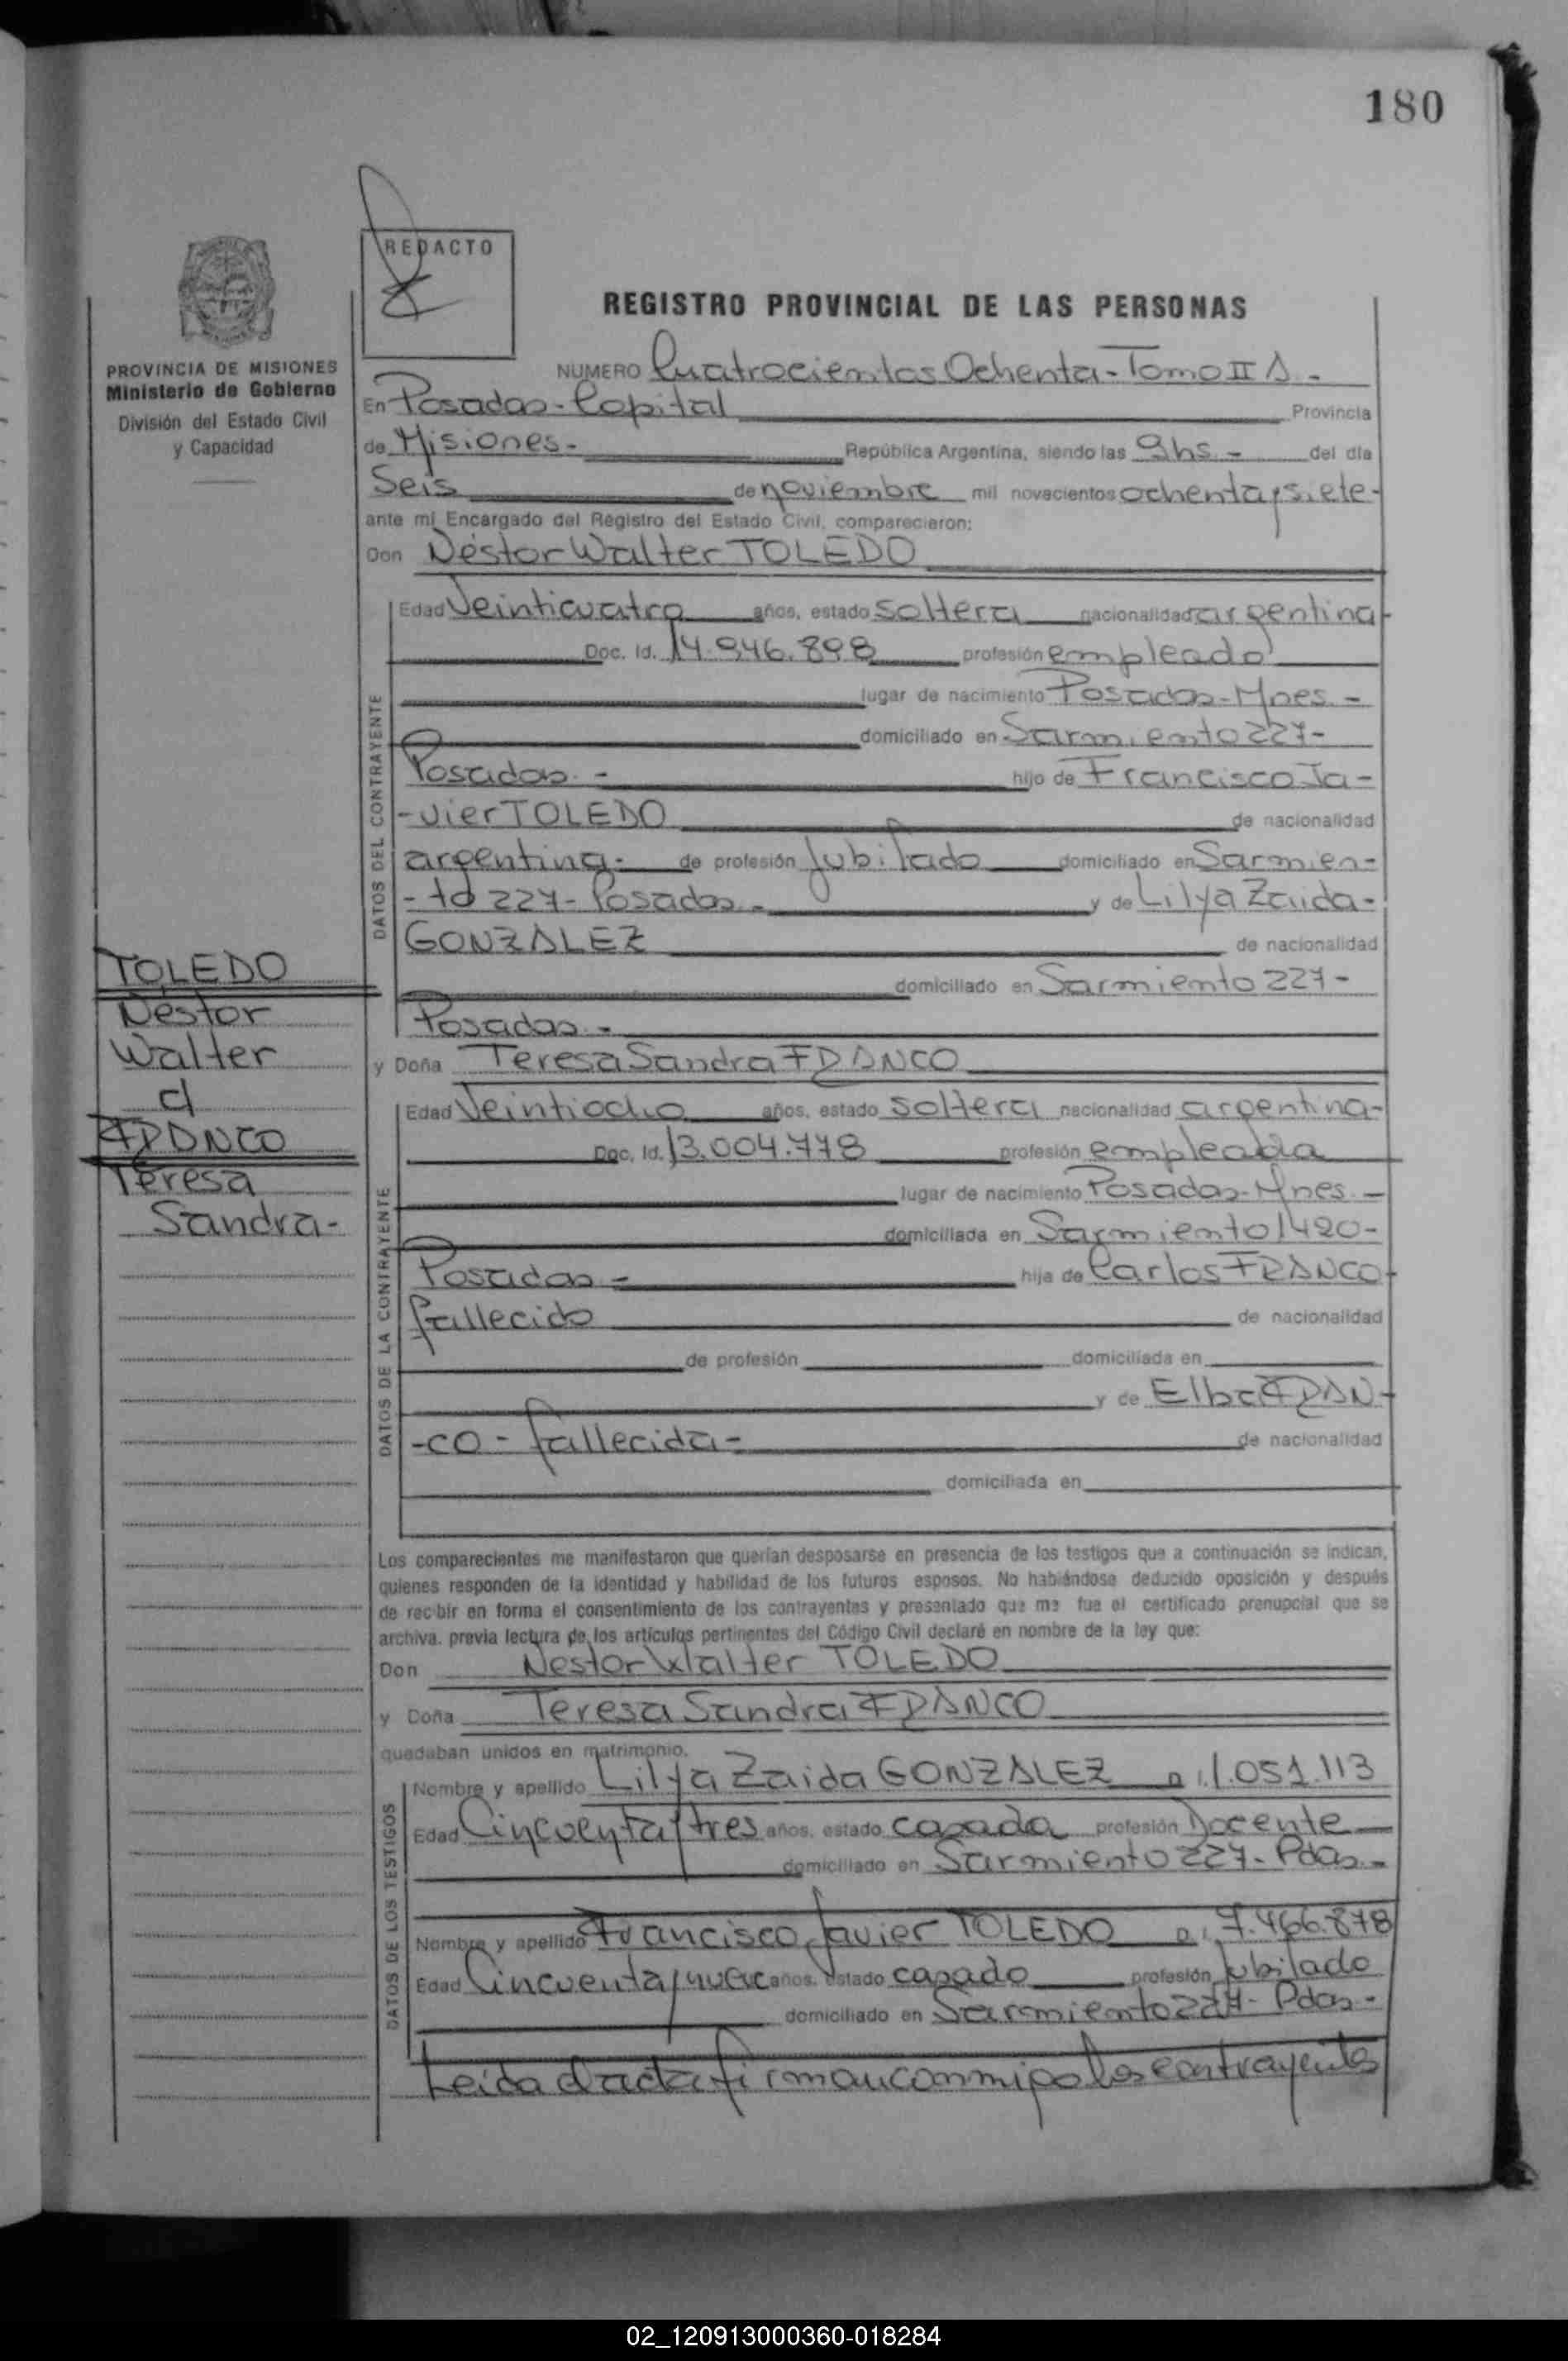 180
REDACTO
REGISTRO PROVINCIAL DE LAS PERSONAS
PROVINCIA DE MISIONES
Ministerio de Gobierno
División del Estado Civil
y Capacidad
NUMERO Cuatrocientos Ochenta - Tomo II A -
En Posadas - Capital Provincia
de Misiones - República Argentina, siendo las 9hs - del día
Seis de noviembre mil novecientos ochenta y siete -
ante mí Encargado del Registro del Estado Civil, comparecieron:
Don Néstor Walter TOLEDO
DATOS DEL CONTRAYENTE
Edad Veinticuatro años, estado soltero nacionalidad argentina
Doc. Id. 14.946.898 profesión empleado
lugar de nacimiento Posadas - Mnes. -
domiciliado en Sarmiento 227 -
Posadas - hijo de Francisco Ja-
-vier TOLEDO de nacionalidad
argentina - de profesión Jubilado domiciliado en Sarmien-
-to 227 - Posadas - y de Lilya Zaida -
GONZALEZ de nacionalidad
domiciliado en Sarmiento 227 -
Posadas -
TOLEDO
Nestor
Walter
FRANCO
Teresa
Sandra -
y Doña Teresa Sandra FRANCO
DATOS DE LA CONTRAYENTE
Edad Veintiocho años, estado soltera nacionalidad argentina -
Doc. Id. 13.004.778 profesión empleada
lugar de nacimiento Posadas - Mnes. -
domiciliada en Sarmiento 1420 -
Posadas - hija de Carlos FRANCO
fallecido de nacionalidad
de profesión domiciliada en
y de Elba FRAN-
-CO - fallecida - de nacionalidad
domiciliada en
Los comparecientes me manifestaron que querían desposarse en presencia de los testigos que a continuación se indican,
quienes responden de la identidad y habilidad de los futuros esposos. No habiéndose deducido oposición y después
de recibir en forma el consentimiento de los contrayentes y presentado que me fue el certificado prenupcial que se
archiva. previa lectura de los artículos pertinentes del Código Civil declaré en nombre de la ley que:
Don Nestor Walter TOLEDO
y Doña Teresa Sandra FRANCO
quedaban unidos en matrimonio.
DATOS DE LOS TESTIGOS
Nombre y apellido Lilya Zaida GONZALEZ 1.051.113
Edad Cincuenta y tres años, estado casada profesión Docente
domiciliado en Sarmiento 227 - Pdas -
Nombre y apellido Francisco Javier TOLEDO 7.466.878
Edad Cincuenta y nueve años, estado casado profesión Jubilado
domiciliado en Sarmiento 227 - Pdas -
Leida el acta firman conmigo los contrayentes
02_120913000360-018284